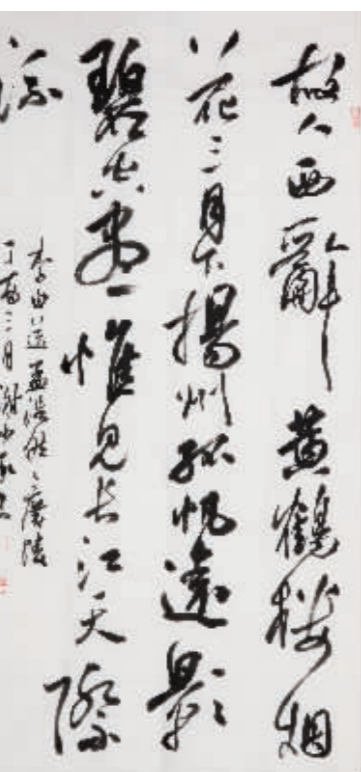 故人西辭黃鶴樓烟
花三月下揚州孤帆遠影
碧空盡惟見长江天際
流
李白送孟浩然之廣陵
三月